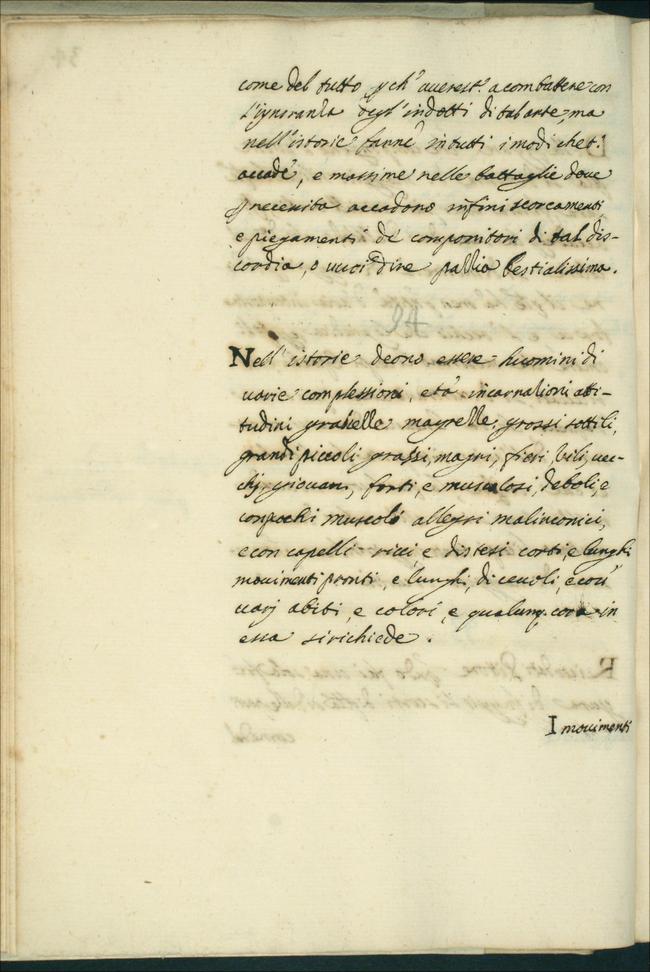 come del tutto, pch' auerest.ⁱ a combattere con
l'ignoranza degl' indotti di tal arte, ma
nell' istorie fanne in tutti i modi che t.ⁱ
accade, e massime nelle battaglie doue
p necessita accadono infini scorcamenti
e piegamenti de componitori di tal dis-
cordia, o uuoi dire pazzia bestialissima.
94
Nell' istorie deono essere huomini di
uarie complessioni, età incarnazioni atti-
tudini grassezze magrezze, grossi sottili,
grandi piccoli grassi, magri, fieri uili, uec-
chj, giouani, forti, e muscolosi, deboli, e
con pochi muscoli allegri malinconici,
e con capelli ricci e distesi corti, e lunghi
mouimenti pronti, e lunghi, di ceuoli, e così
uarj abiti, e colori, e qualunq. cosa in
essa si richiede.
I mouimenti